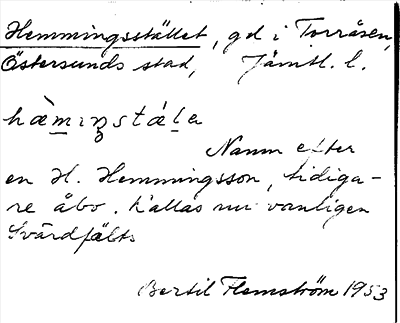 Hemmingsstället, gd i Torråsen,
Östersunds stad, Jämtl. l.
hæ̀mıŋstǽla
Namn efter
en H. Hemmingsson, tidiga-
re åbo. Kallas nu vanligen
Bertil Flemström 1953